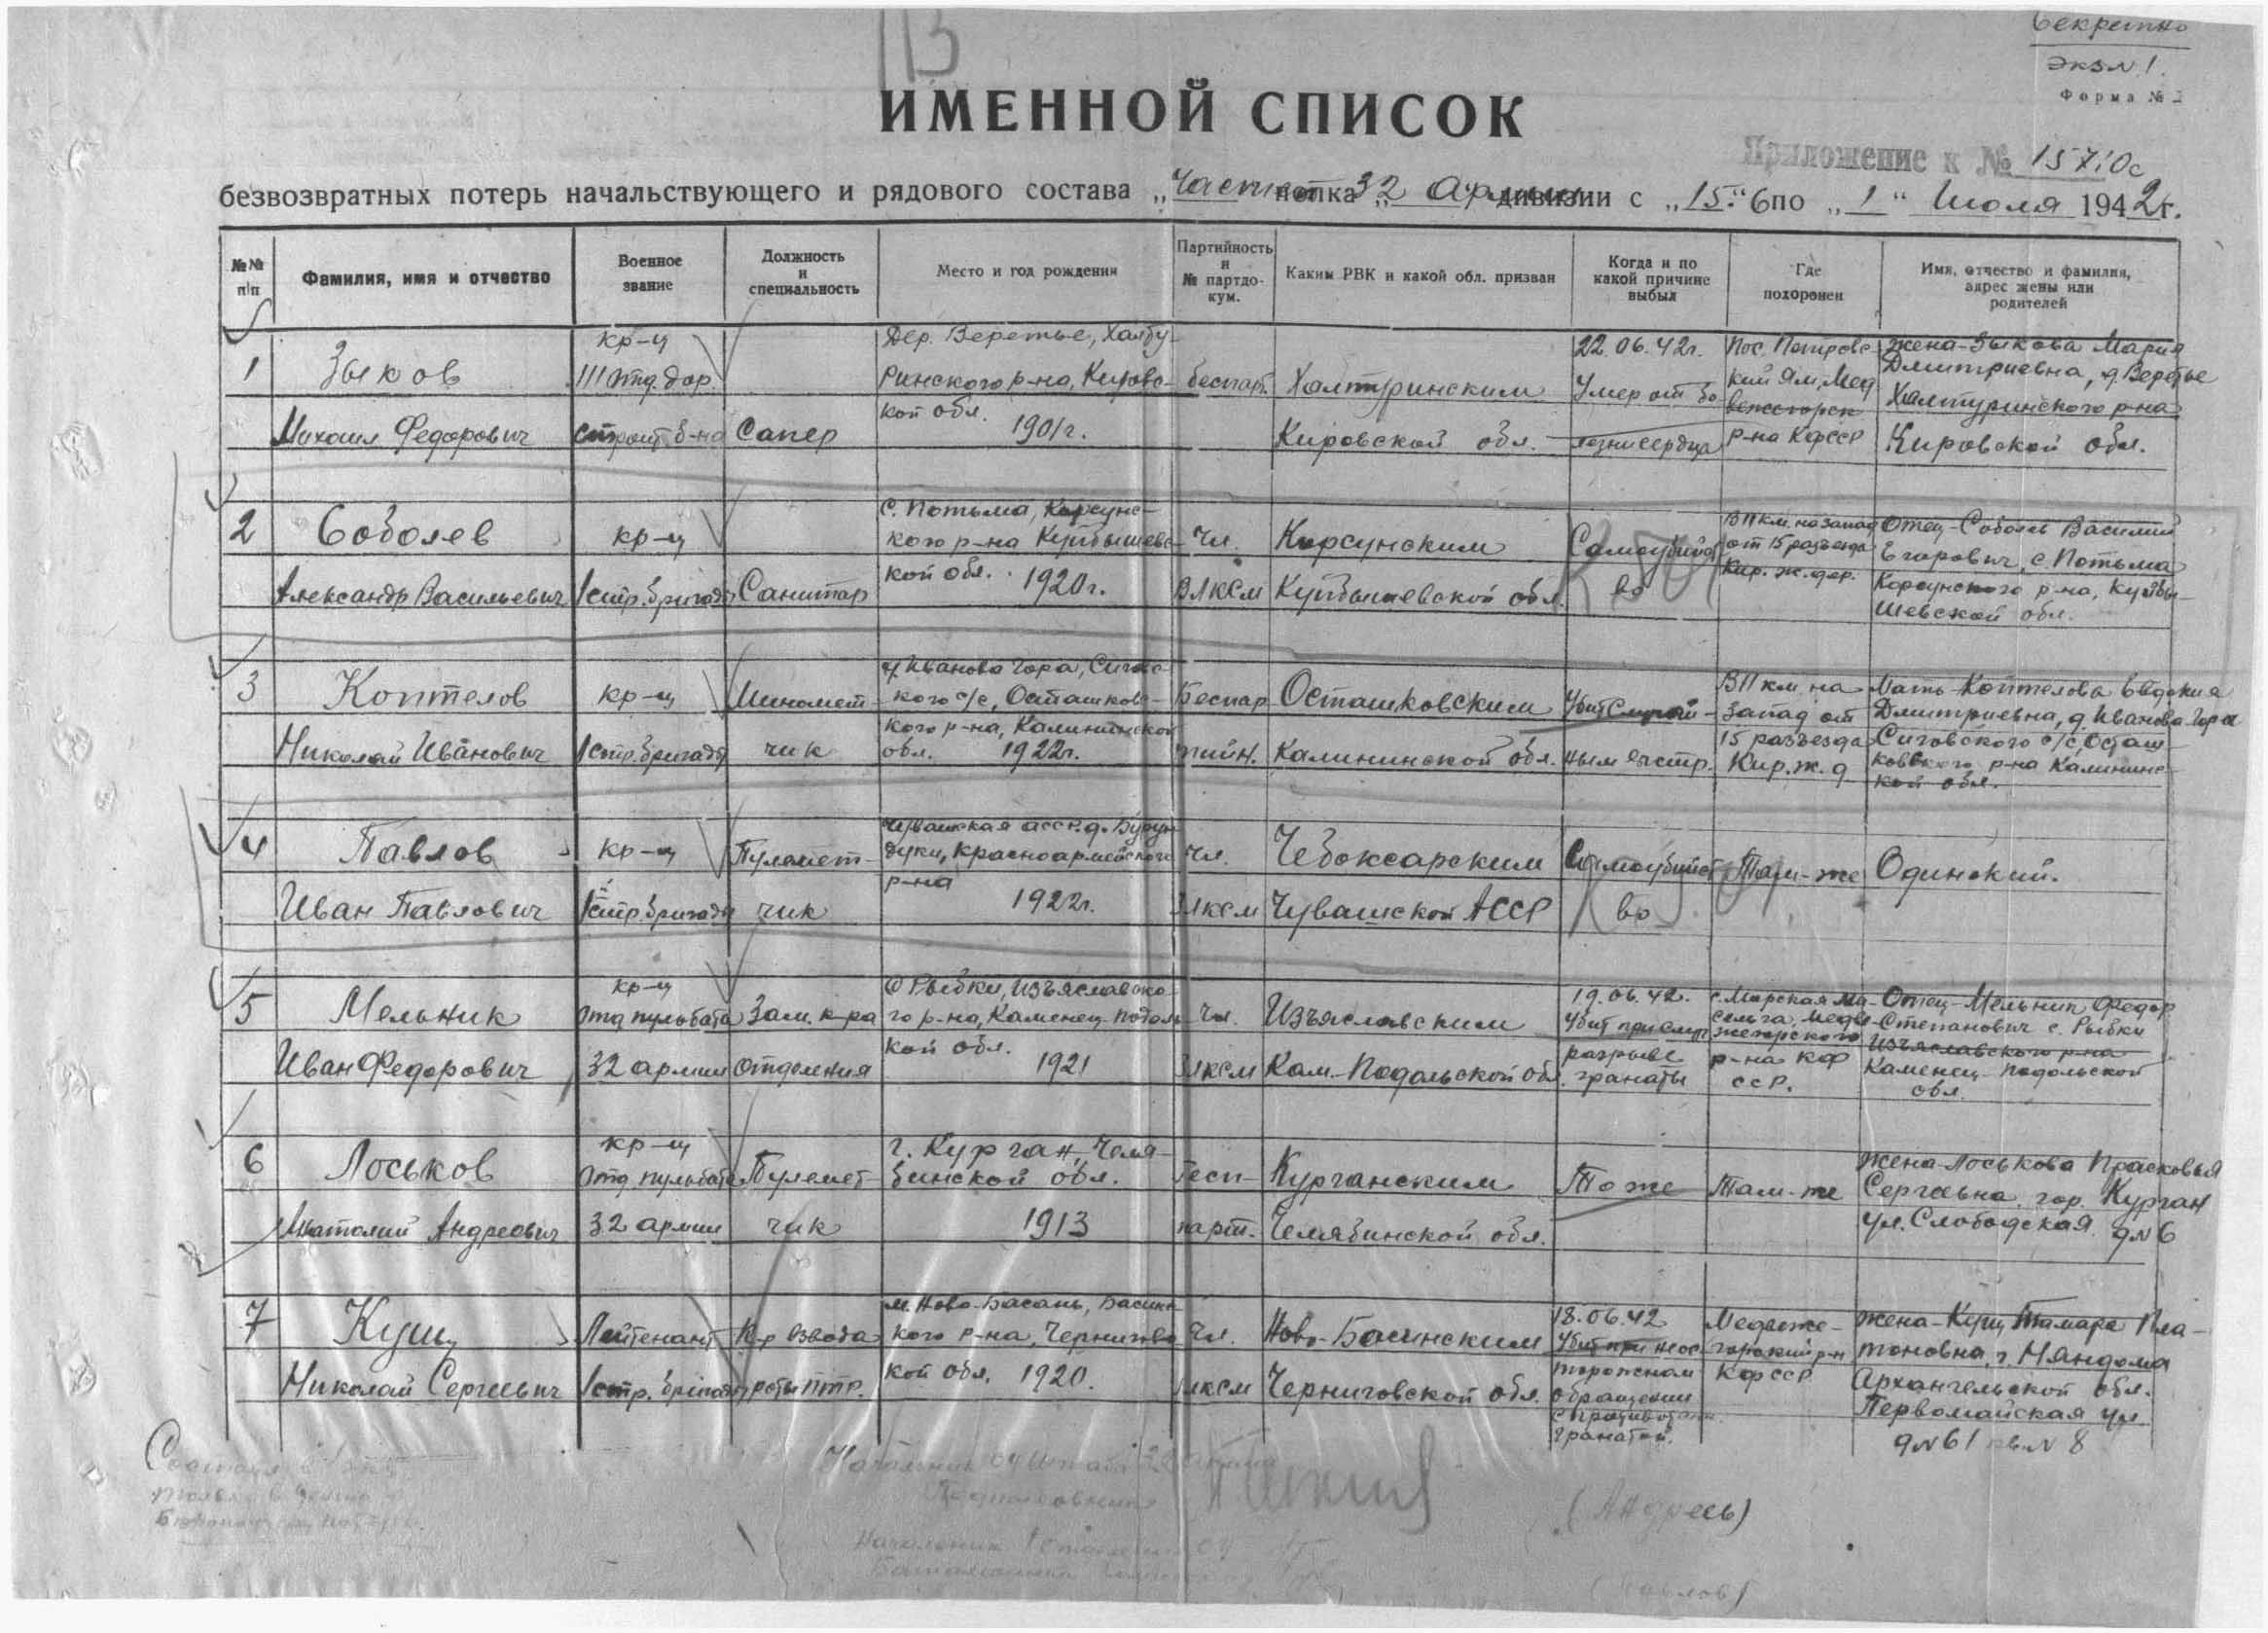 113
Секретно
Экз № 1.
Форма № 2
ИМЕННОЙ СПИСОК
Приложение к № 15710с
безвозвратных потерь начальствующего и рядового состава „Частей полка 32 Армии дивизии с „15“ 6 по „1“ Июля 1942 г.
№№ п/п
Фамилия, имя и отчество
Военное звание
Должность и специальность
Место и год рождения
Партийность и № партдокум.
Каким РВК и какой обл. призван
Когда и по какой причине выбыл
Где похоронен
Имя, отчество и фамилия, адрес жены или родителей
1
Зыков
Михаил Федорович
кр-ц
111 отд. дор
строит. б-на
Сапер
Дер. Веретье, Халту-
ринского р-на, Кировс-
кой обл. 1901г.
беспарт.
Халтуринским
Кировской обл.
22.06.42г.
Умер от бо
лезни сердца
Пос. Петровс-
кий Ям, Мед
вежегорск
р-на КФССР
жена-Зыкова Мария
Дмитриевна, д. Веретье
Халтуринского р-на
Кировской обл.
2
Соболев
Александр Васильевич
кр-ц
1 стр. бригады
Санитар
С. Потьма, Карсунс-
кого р-на Куйбышевс-
кой обл. 1920г.
Чл.
ВЛКСМ
Карсунским
Куйбышевской обл.
Самоубийст
во
В 11 км. на запад
от 15 разъезда
Кир. ж. дор.
Отец-Соболев Василий
Егорович, с. Потьма
Карсунского р-на, Куйбы-
шевской обл.
3
Коптелов
Николай Иванович
кр-ц
1 стр. бригады
Миномет-
чик
д. Иванова Гора, Сиговс-
кого с/с, Осташковс-
кого р-на, Калининской
обл. 1922г.
Беспар
тийн.
Осташковским
Калининской обл.
Убит Случай-
ным выстр.
В 11 км. на
запад от
15 разъезда
Кир. ж. д
Мать-Коптелова Евдокия
Дмитриевна, д. Иванова Гора
Сиговского с/с, Осташ-
ковского р-на Калининс-
кой обл.
4
Павлов
Иван Павлович
кр-ц
1 стр. бригады
Пулемет-
чик
Чувашская АССР, д.
дуки, Красноармейского
р-на 1922г.
Чл.
ВЛКСМ
Чебоксарским
Чувашской АССР
Самоубийст
во
Там-же
Одинокий.
5
Мельник
Иван Федорович
кр-ц
Отд пульбата
32 армии
Зам. к-ра
отделения
с Рыбки, Изъяславско-
го р-на, Каменец-Подоль
кой обл. 1921
Чл.
ВЛКСМ
Изъяславским
Кам.-Подольской обл.
19.06.42.
Убит при случ
разрыве
гранаты
с. Морская Ма-
сельга, Медве-
жегорского
р-на КФ
ССР.
Отец-Мельник Федор
Степанович с. Рыбки
Изъяславского р-на
Каменец-Подольской
обл.
6
Лоськов
Анатолий Андреевич
кр-ц
Отд. пульбата
32 армии
Пулемет-
чик
г. Курган, Челя-
бинской обл.
1913
Бесп-
парт.
Курганским
Челябинской обл.
То же
Там-же
Жена-Лоськова Прасковья
Сергеевна, гор. Курган
ул. Слободская д №6
7
Куц
Николай Сергеевич
Лейтенант
1 стр. бригады
К-р взвода
роты ПТР.
м. Ново-Басань, Басанс
кого р-на, Черниговс
кой обл. 1920.
Чл.
ВЛКСМ
Ново-Басанским
Черниговской обл.
18.06.42
Убит при неос
торожном
обращении
с противотанк.
гранатой.
Медвеже-
горский р-н
КФССР
Жена-Куц Тамара Пла-
тоновна, г. Няндома
Архангельской обл.
Первомайская ул
д №61 кв. № 8
Начальник ОУ Штаба 32 армии
Подполковник
(Андреев)
Начальник 1 отделения ОУ
(Павлов)